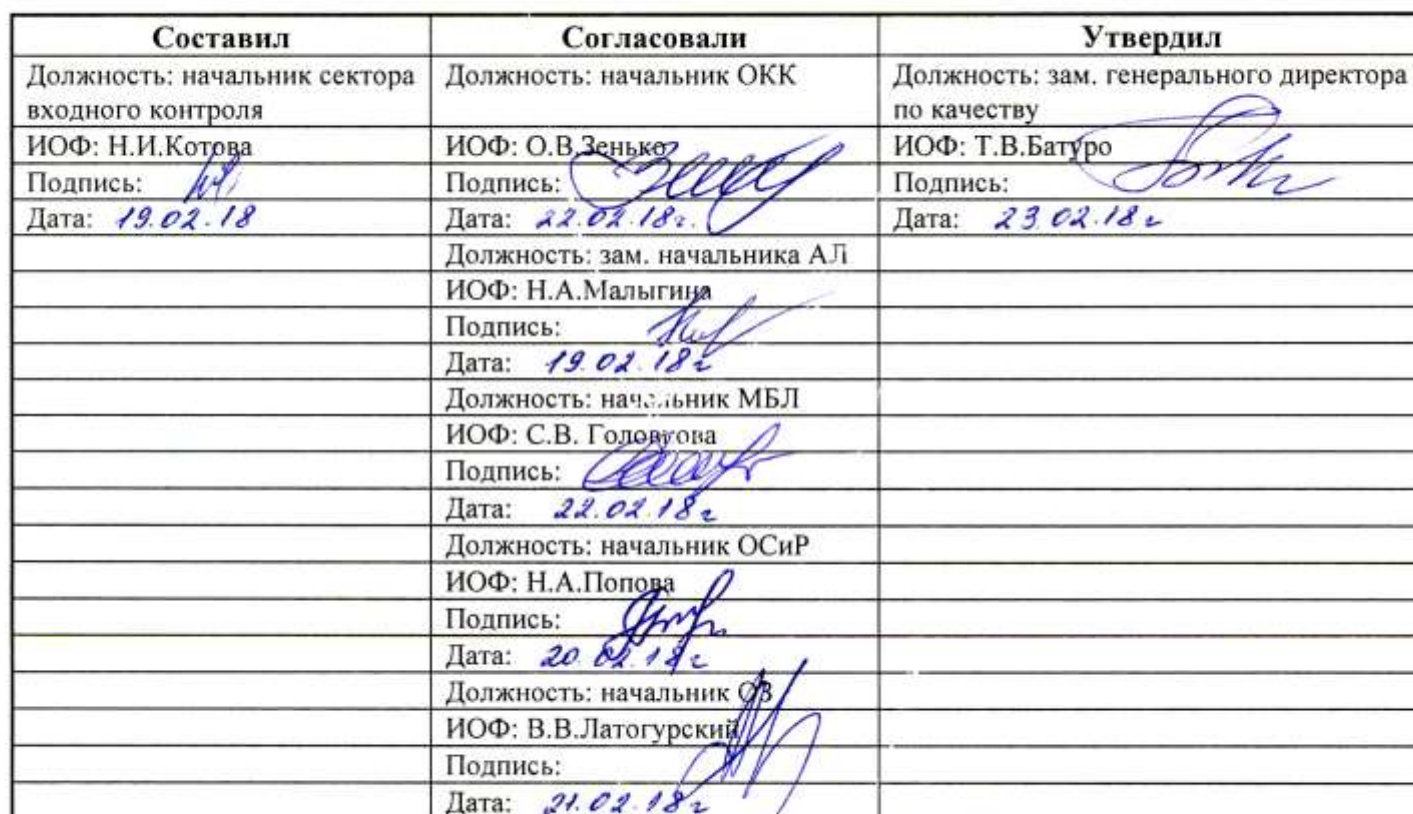 Составил Согласовали Утвердил
Должность: начальник сектора Должность: начальник ОКК Должность: зам. генерального директора
входного контроля по качеству
ИОФ: Н.И.Котова ИОФ: О.В.Зенько ИОФ: Т.В.Батуро
Подпись: Подпись: Подпись:
Дата: 19.02.18 Дата: 22.02.18г. Дата: 23.02.18г
Должность: зам. начальника АЛ
ИОФ: Н.А.Малыгина
Подпись:
Дата: 19.02.18г
Должность: начальник МБЛ
ИОФ: С.В.
Подпись:
Дата: 22.02.18г
Должность: начальник ОСиР
ИОФ: Н.А.Попова
Подпись:
Дата: 20.02.18г
Должность: начальник ОЗ
ИОФ: В.В.Латогурский
Подпись:
Дата: 21.02.18г